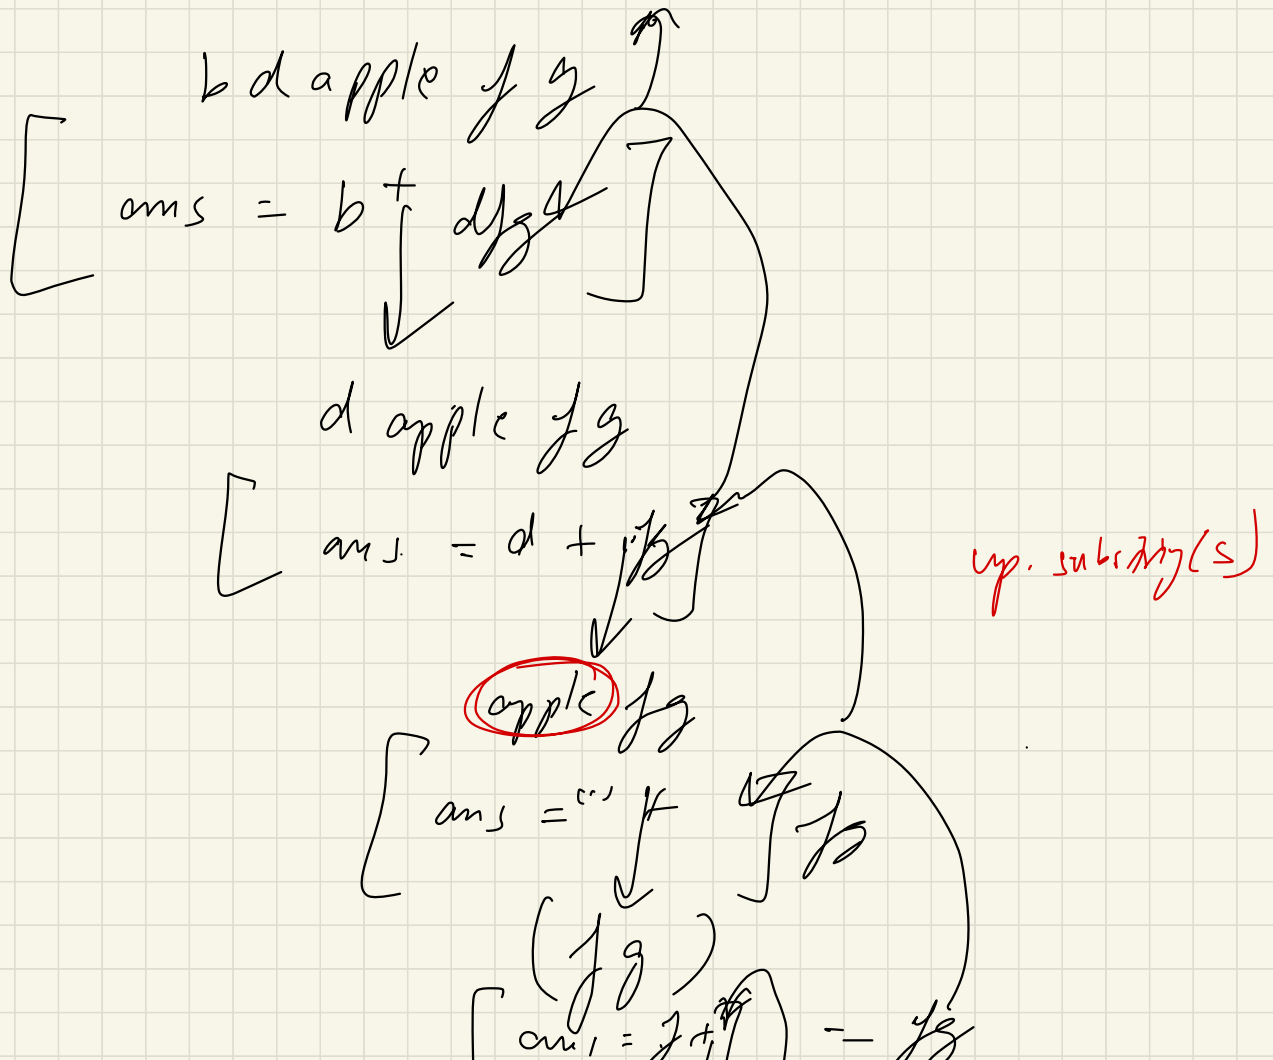 b d apple f g
ans = b + dfg
d apple f g
ans = d + fg
up.substring(s)
apple fg
ans = "" + fg
(f g)
ans = f + = fg